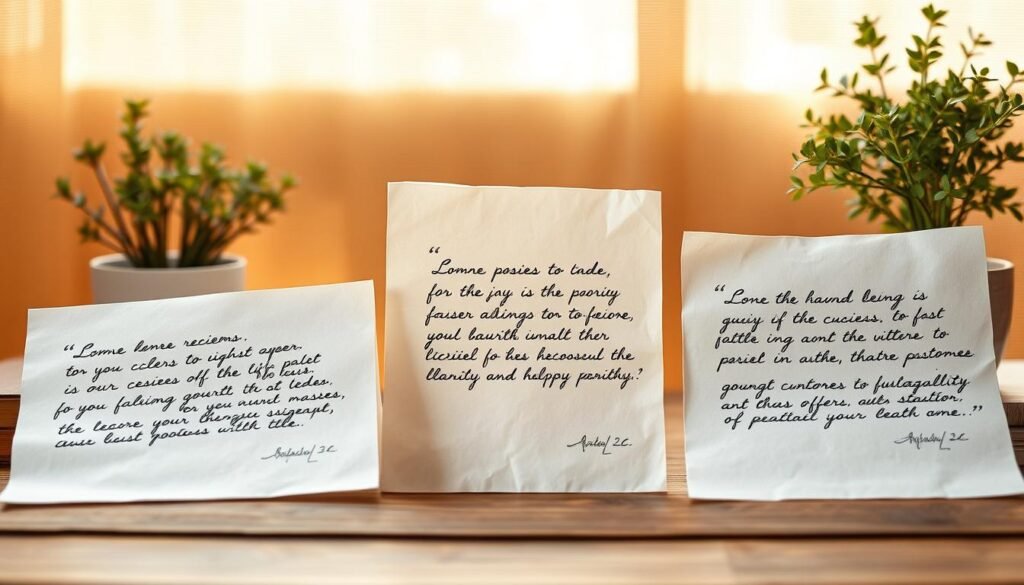 “Lomne lenre reciems.
tor you cclers to ightst ayer.
is our cesiees off the litt palet
fo you falking gourth the ot ledes,
the lecore your
cause beist gooteus with ttle..
“Lomne posies to tade,
for the jay is the poority
fauser allings tor to-feione,
youl baurith umalt ther
licriiel fo hes hecooscul the
llarity and helppy parithy.?
“Lone the havnd leing is
guiiy if the cuciess, to fast
fattle ing aont the vittere to
pariel in authe, thatre pastomee
goungt cuntores to fuslagallity
ant thus offers, auls stantion,
of peattail your leath ame..”